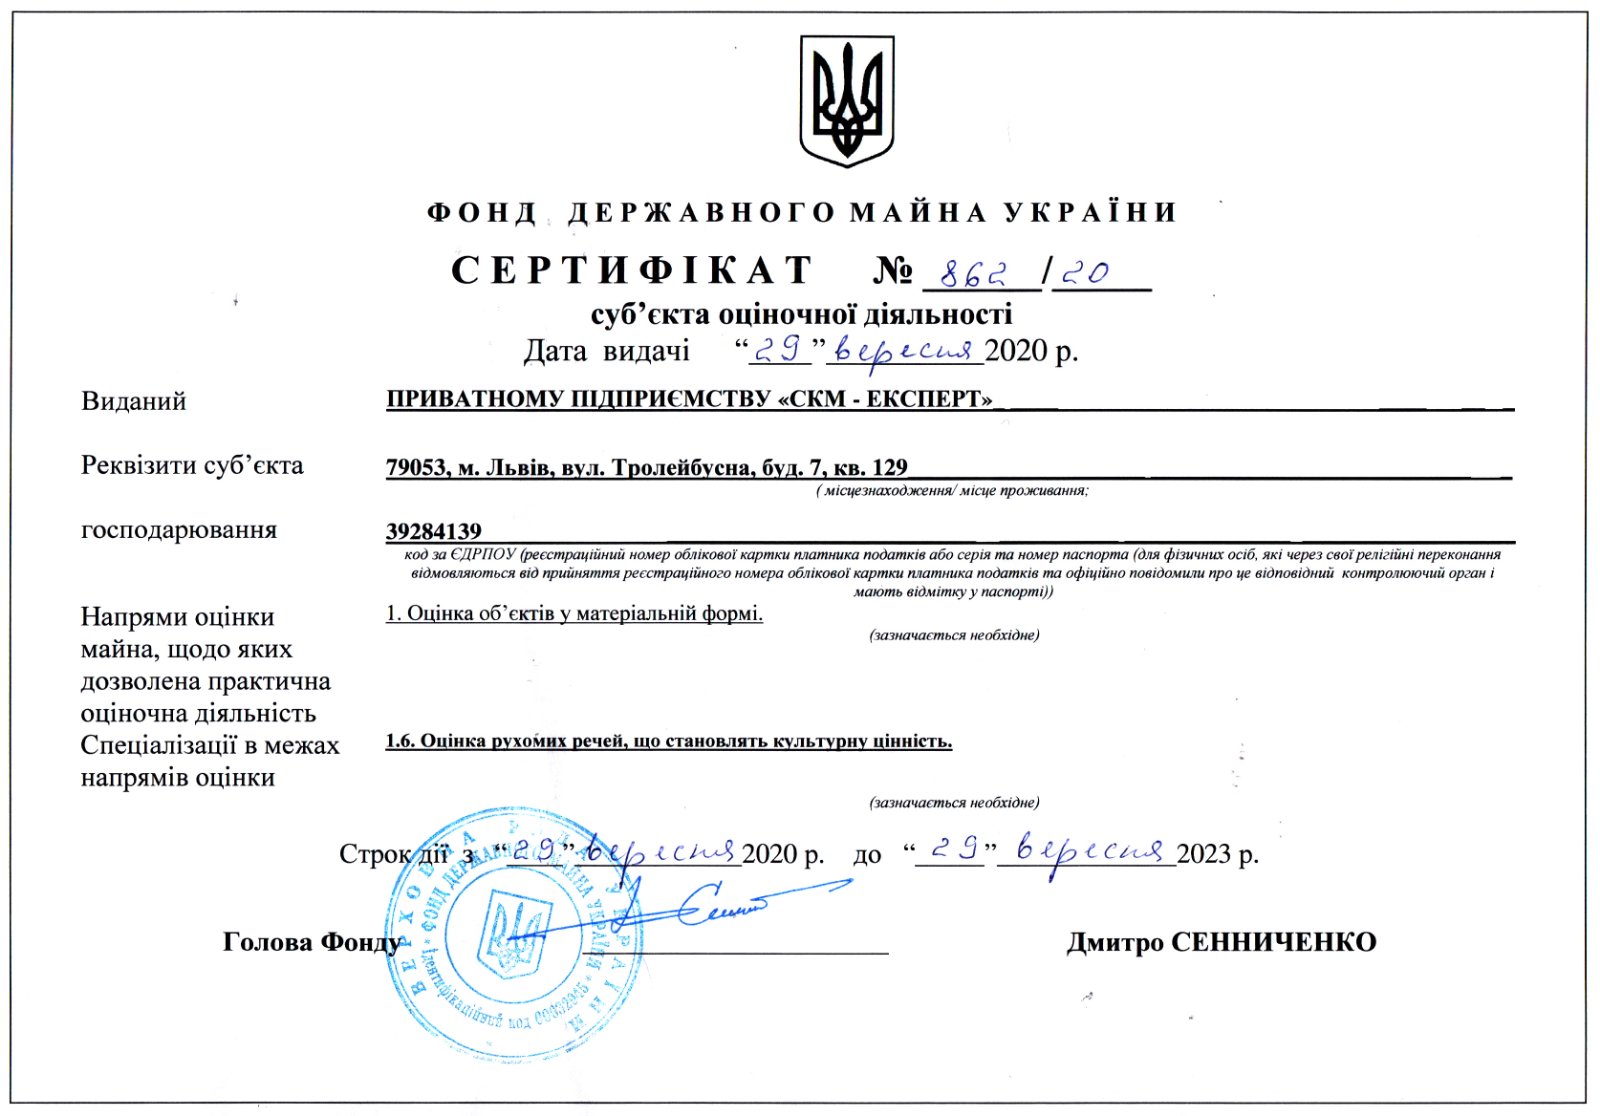 ФОНД ДЕРЖАВНОГО МАЙНА УКРАЇНИ
СЕРТИФІКАТ № 862/20
суб’єкта оціночної діяльності
Дата видачі “29” вересня 2020 р.
Виданий ПРИВАТНОМУ ПІДПРИЄМСТВУ «СКМ - ЕКСПЕРТ»
Реквізити суб’єкта 79053, м. Львів, вул. Тролейбусна, буд. 7, кв. 129
( місцезнаходження/ місце проживання;
господарювання 39284139
код за ЄДРПОУ (реєстраційний номер облікової картки платника податків або серія та номер паспорта (для фізичних осіб, які через свої релігійні переконання
відмовляються від прийняття реєстраційного номера облікової картки платника податків та офіційно повідомили про це відповідний контролюючий орган і
мають відмітку у паспорті))
Напрями оцінки 1. Оцінка об’єктів у матеріальній формі.
(зазначається необхідне)
майна, щодо яких
дозволена практична
оціночна діяльність
Спеціалізації в межах 1.6. Оцінка рухомих речей, що становлять культурну цінність.
напрямів оцінки
(зазначається необхідне)
Строк дії з “29” вересня 2020 р. до “29” вересня 2023 р.
Голова Фонду Дмитро СЕННИЧЕНКО
ВЕРХОВНА РАДА УКРАЇНИ
ФОНД ДЕРЖАВНОГО МАЙНА УКРАЇНИ
Ідентифікаційний код 00032945